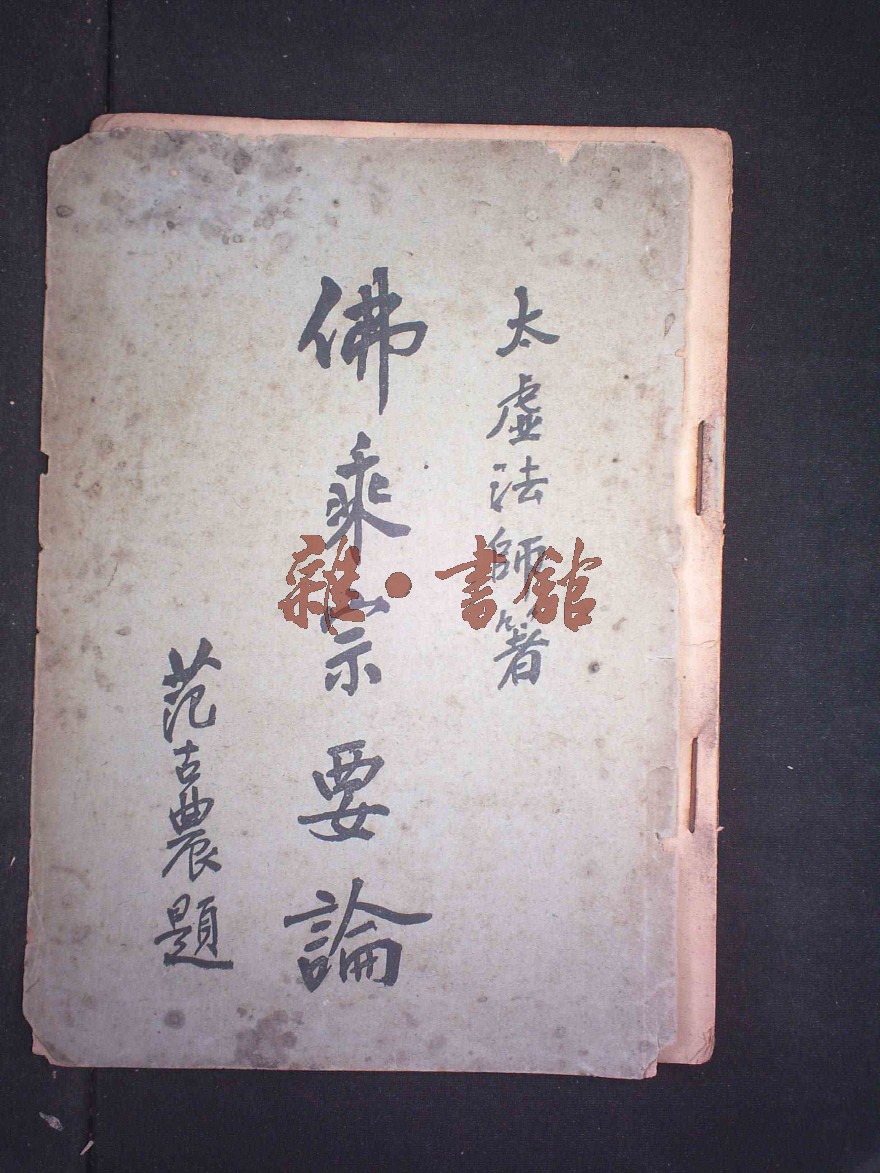 太虛法師著
佛乘宗要論
范古農題
雜·書館